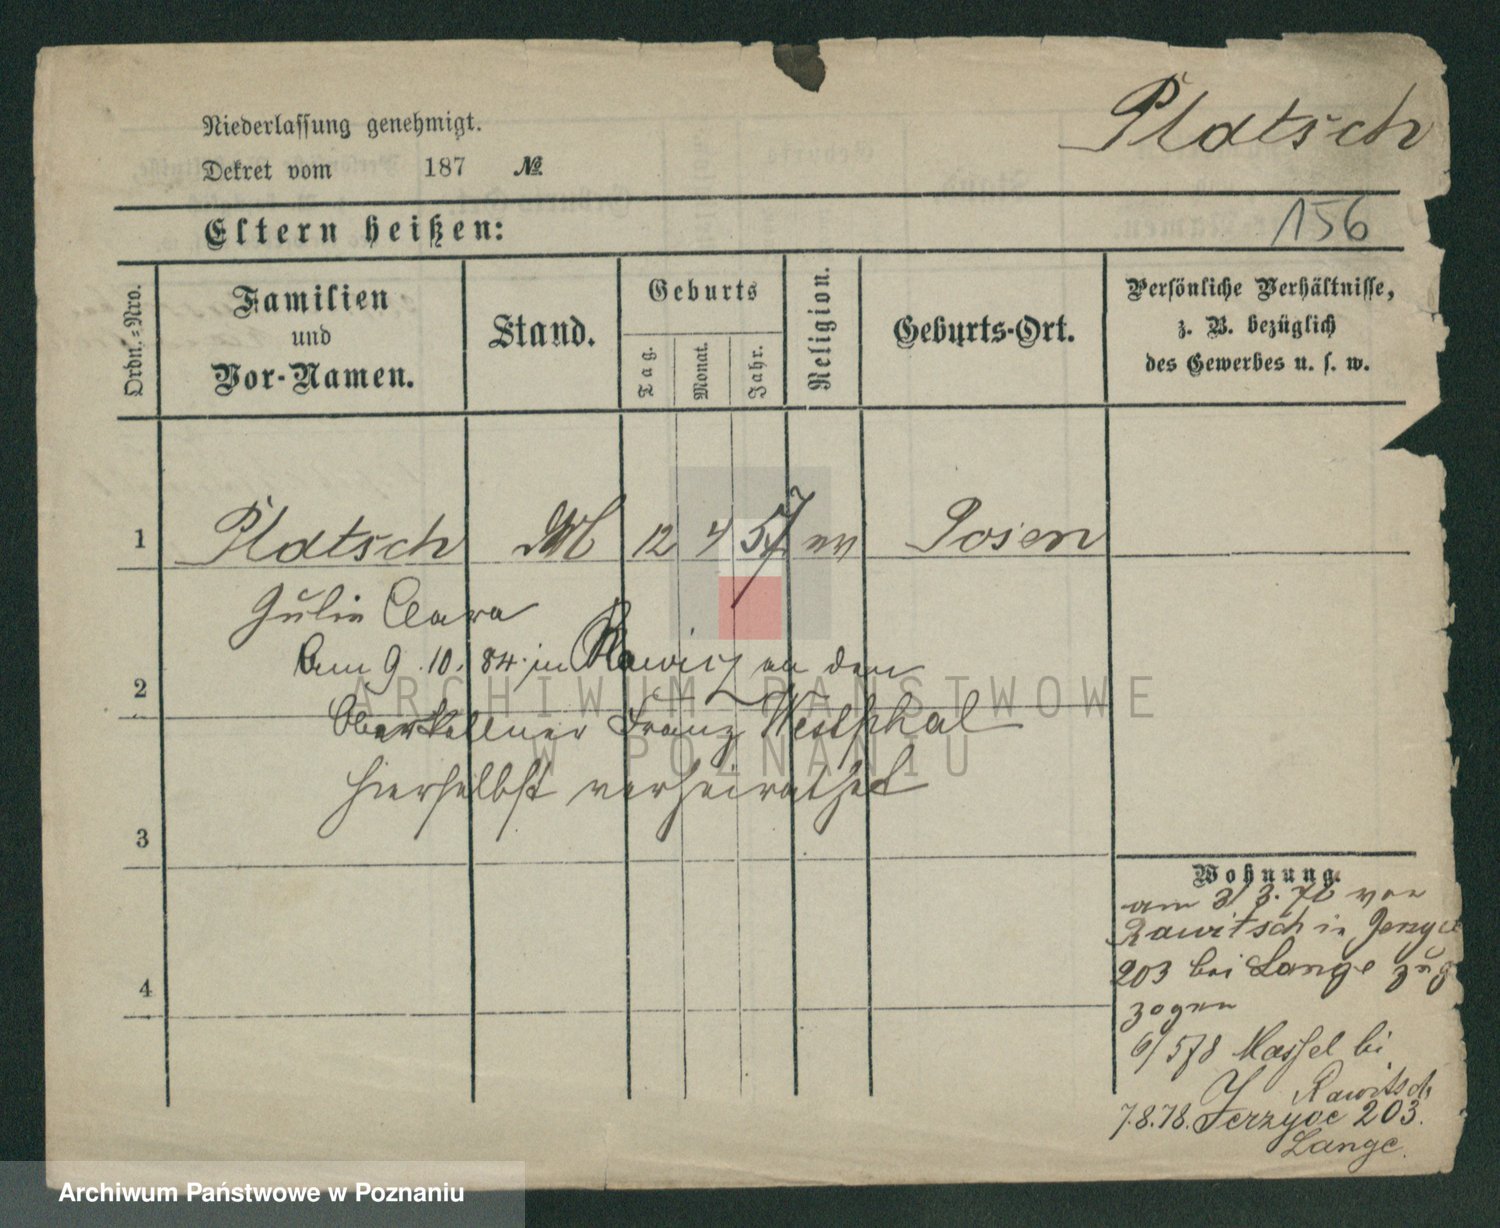 Platsch
Niederlassung genehmigt.
Dekret vom 187 №
Eltern heißen:
156
Ordn.-Nro.
Familien
und
Vor-Namen.
Stand.
Geburts
Tag.
Monat.
Jahr.
Religion.
Geburts-Ort.
Persönliche Verhältnisse,
z. B. bezüglich
des Gewerbes u. s. w.
1 Platsch 12 4 57 ev Posen
Julie Clara
am 9.10.84. in Rawicz an den
2
Oberkellner Franz Westphal
hierselbst verheirathet
3
4
Wohnung.
am 3. von
Rawitsch in Jerzyce
203 bei Lange zuge
zogen
6/578 Massel bei
Rawitsch
7.8.78. Jerzyce 203.
Lange.
ARCHIWUM PAŃSTWOWE
W POZNANIU
Archiwum Państwowe w Poznaniu